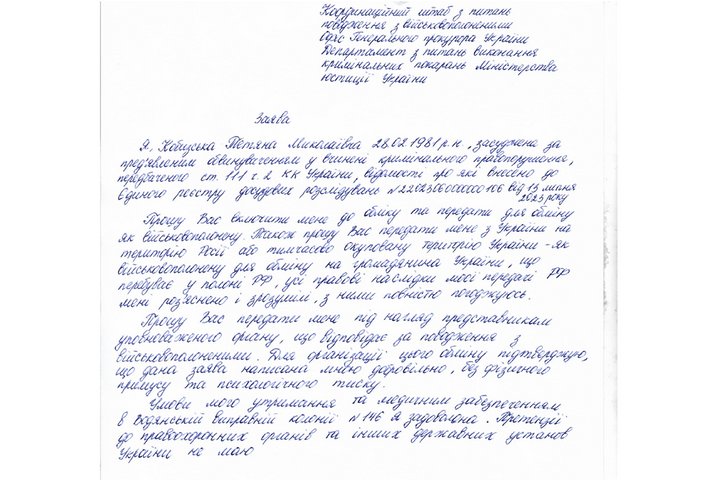 Координаційний штаб з питань
поводження з військовополоненими
Офіс Генерального прокурора України
Департамент з питань виконання
кримінальних покарань Міністерства
юстиції України
Заява
Я, Кобицська Тетяна Миколаївна 28.02.1981 р.н., засуджена за
пред'явленим обвинуваченням у вчинені кримінального правопорушення,
передбаченого ст. 111 ч. 2 КК України, відомості про які внесено до
Єдиного реєстру досудових розслідувань №22023060000000106 від 13 липня
2023 року
Прошу Вас включити мене до обліку та передати для обміну
як військовополонену. Також прошу Вас передати мене з України на
територію Росії або тимчасово окуповану територію України - як
військовополонену для обміну на громадянина України, що
перебуває у полоні РФ, усі правові наслідки моєї передачі РФ
мені роз'яснено і зрозумілі, з ними повністю погоджуюсь.
Прошу Вас передати мене під нагляд представникам
уповноваженого органу, що відповідає за поводження з
військовополоненими. Для організації цього обміну підтверджую,
що дана заява написана мною добровільно, без фізичного
примусу та психологічного тиску.
Умови мого утримання та медичним забезпеченням
в Бодянській виправній колонії №146 я задоволена. Претензії
до правоохоронних органів та інших державних установ
України не маю